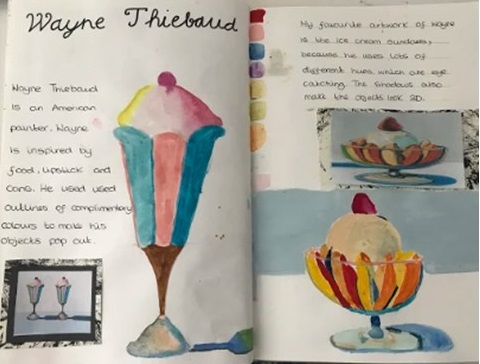 Wayne Thiebaud
Wayne Thiebaud
is an American
painter. Wayne
is inspired by
food, lipstick and
cans. He used used
outlines of complimentary
colours to make his
objects pop out.
My favourite artwork of Wayne
is the ice cream sundaes,
because he uses lots of
different hues which are eye
catching. The shadows also
make the objects look 3D.